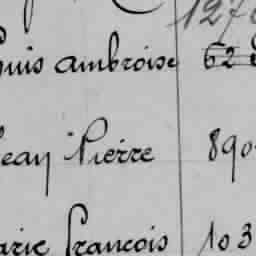 127
ouis ambroise 62
Jean Pierre 890
arie francois 103